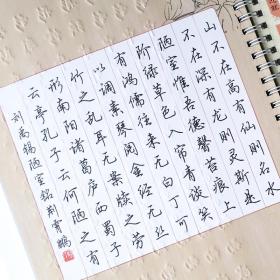 山不在高有仙则名水
不在深有龙则灵斯是
陋室惟吾德馨苔痕上
阶绿草色入帘青谈笑
有鸿儒往来无白丁可
以调素琴阅金经无丝
竹之乱耳无案牍之劳
形南阳诸葛庐西蜀子
云亭孔子云何陋之有
刘禹锡陋室铭荆霄鹏